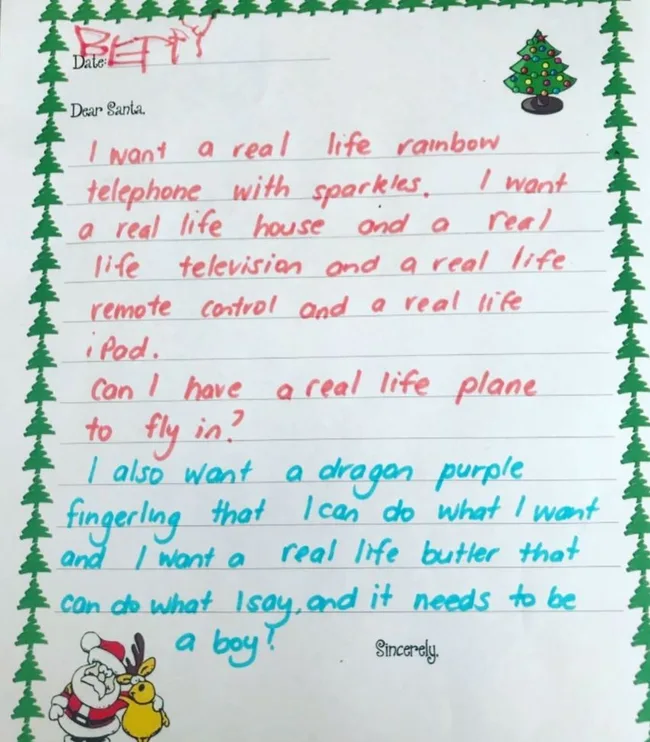 BETTY
Date:
Dear Santa,
I want a real life rainbow
telephone with sparkles. I want
a real life house and a real
life television and a real life
remote control and a real life
iPad.
Can I have a real life plane
to fly in?
I also want a dragon purple
fingerling that I can do what I want
and I want a real life butler that
can do what I say, and it needs to be
a boy!
Sincerely,